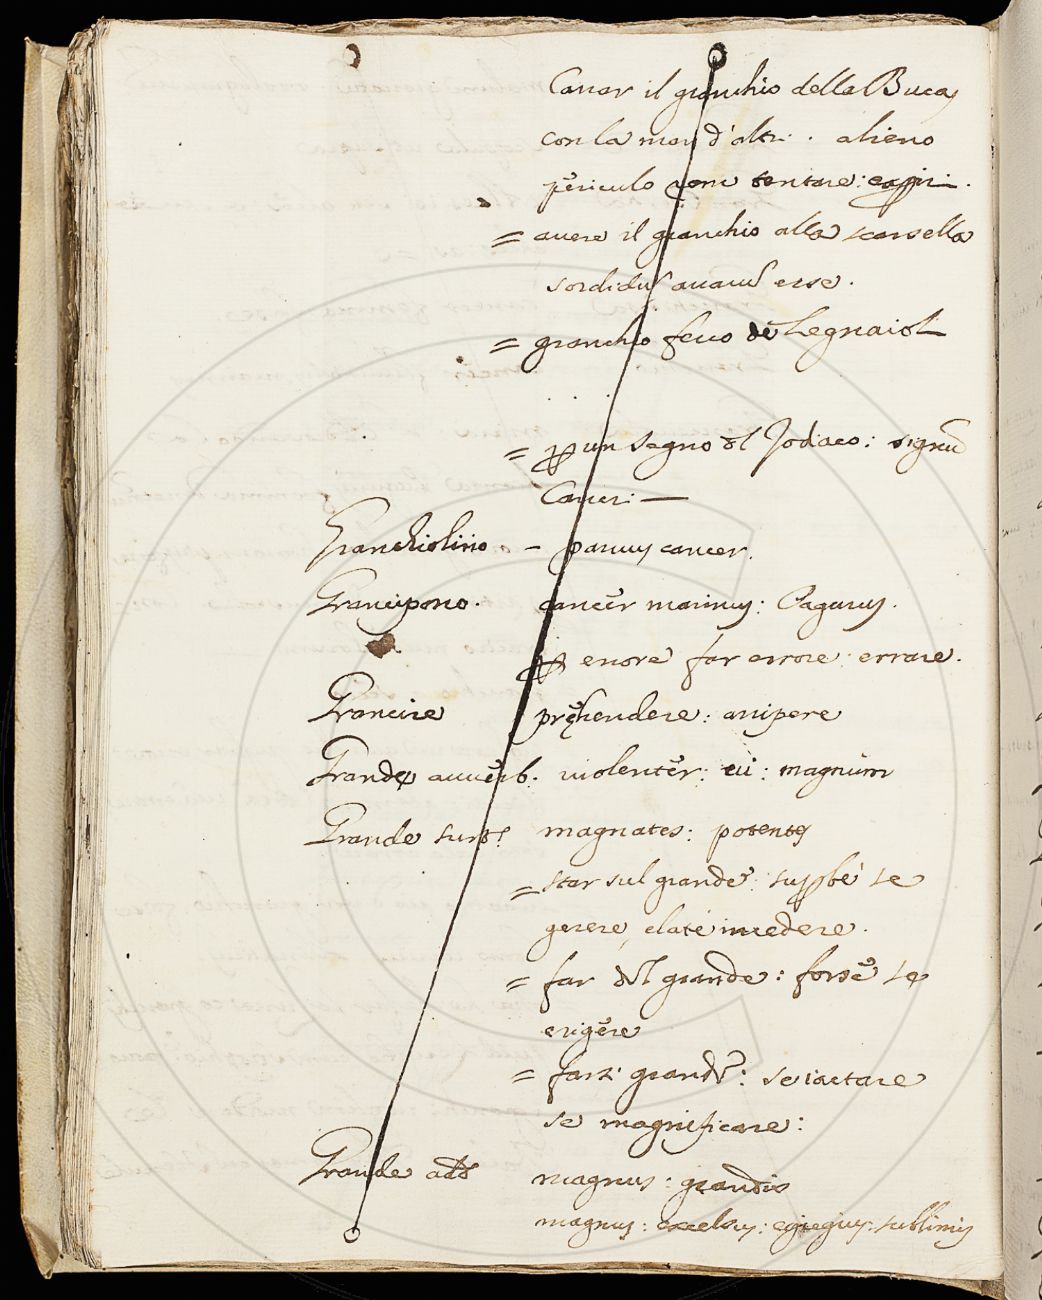 Cavar il granchio della Buca
con la man d'altri. alieno
periculo rem tentare:
= avere il granchio alla scarsella
sordidus avarus esse.
= granchio secco de Legnaioli
= per un segno del Zodiaco: signum
Cancri —
Granchiolino – parvus cancer.
Grancipono. cancer marinus: Pagurus.
per errore far errore: errare.
Grancire prehendere: arripere
Grande avverb. violenter: magnum
Grande sust. magnates: potentes
= star sul grande: superbe se
gerere, elate incedere.
= far del grande: se
erigere
= farsi grande: se iactare
se magnificare:
Grande add magnus: grandis
magnus: excelsus: egregius: sublimis